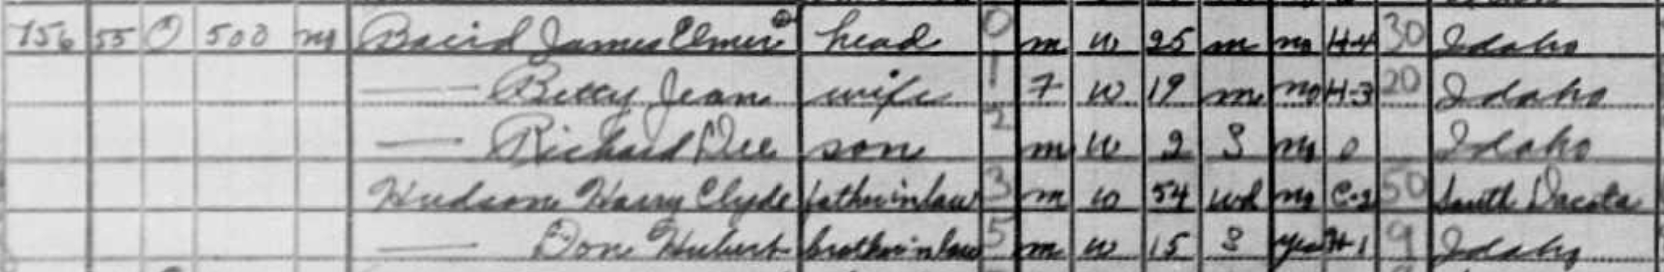 156 55 O 500 no Baird James Elmer head 0 m w 25 m no H-4 30 Idaho
— Betty Jean wife 1 F w 19 m no H-3 20 Idaho
— Richard Dee son 2 m w 2 S no 0 Idaho
Hudson Harry Clyde father in law 3 m w 54 wd no C-2 50 South Dacota
— Don Hubert brother in law 5 m w 15 S yes H-1 9 Idaho